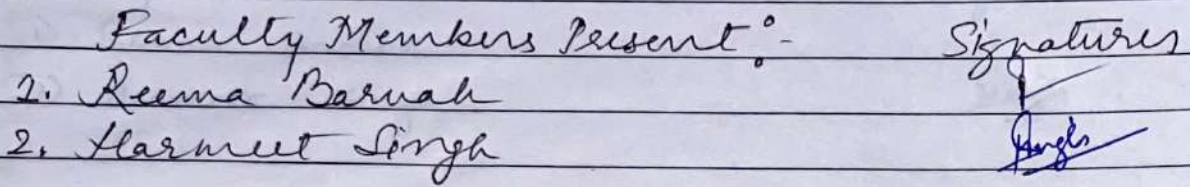 Faculty Members Present :- Signatures
1. Reema Baruah
2. Harmeet Singh